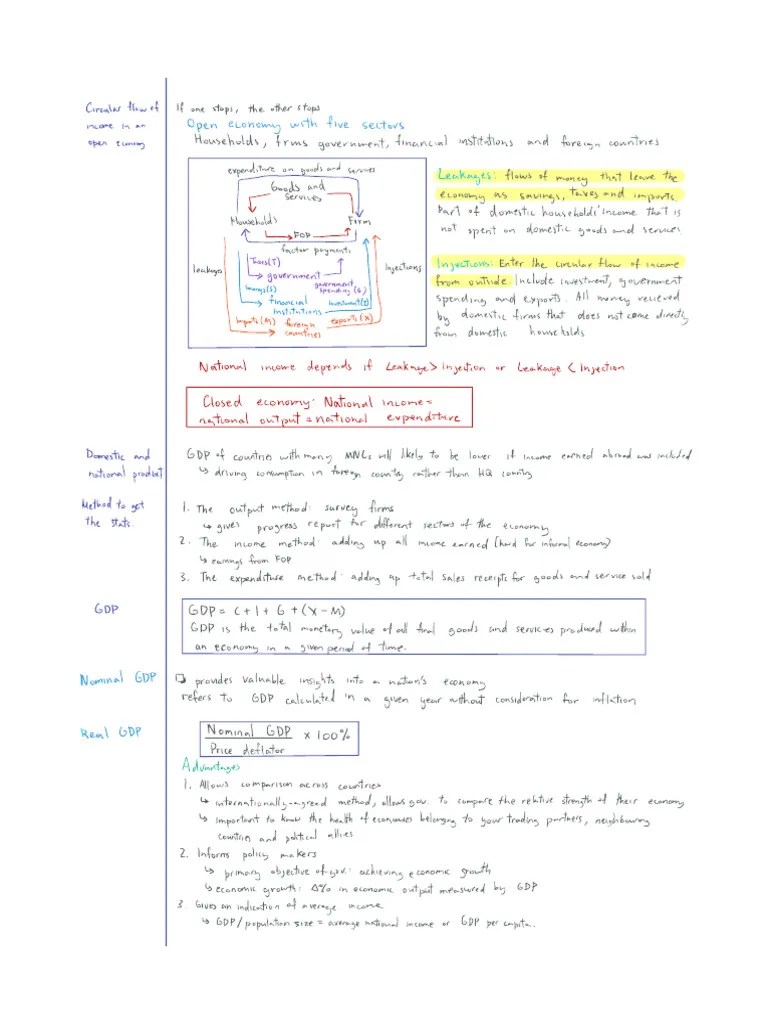 Circular flow of
income in an
open economy
If one stops, the other stops
Open economy with five sectors
Households, firms government, financial institutions and foreign countries
expenditure on goods and services
Goods and
services
Households
Firms
FOP
factor payments
Taxes(T)
government
leakages
Injections
savings(S)
government
spending (G)
financial
institutions
investment(I)
imports (M)
foreign
countries
exports (X)
Leakages: flows of money that leave the
economy as savings, taxes and imports.
Part of domestic households' income that is
not spent on domestic goods and services.
Injections: Enter the circular flow of income
from outside Include investment, government
spending and exports. All money recieved
by domestic firms that does not come directly
from domestic households
National income depends if Leakage > Injection or Leakage < Injection
Closed economy: National income =
national output = national expenditure
Domestic and
national product
GDP of countries with many MNCs will likely to be lower if income earned abroad was included
↳ driving consumption in foreign country rather than HQ country
Method to get
the stats.
1. The output method: survey firms
↳ gives progress report for different sectors of the economy
2. The income method: adding up all income earned (hard for informal economy)
↳ earnings from FOP
3. The expenditure method: adding up total sales receipts for goods and service sold
GDP
GDP = C + I + G + (X - M)
GDP is the total monetary value of all final goods and services produced within
an economy in a given period of time.
Nominal GDP
provides valuable insights into a nation's economy
refers to GDP calculated in a given year without consideration for inflation
Real GDP
Nominal GDP
x 100%
Price deflator
Advantages
1. Allows comparison across countries
↳ internationally-agreed method, allows gov. to compare the relative strength of their economy
↳ important to know the health of economies belonging to your trading partners, neighbouring
countries and political allies
2. Informs policy makers
↳ primary objective of gov: achieving economic growth
↳ economic growth: Δ% in economic output measured by GDP
3. Gives an indication of average income
↳ GDP/population size = average national income or GDP per capita.